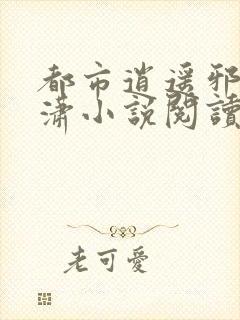 都市逍遥邪
潇小说阅读
老可愛